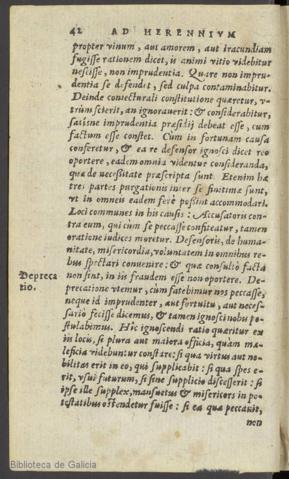 42 AD HERENNIVM
propter vinum, aut amorem, aut iracundiam
fugisse rationem dicet, is animi vitio videbitur
nescisse, non imprudentia. Quare non impru-
dentia se defendet, sed culpa contaminabitur.
Deinde coniecturali constitutione quæretur, v-
trùm scierit, an ignorauerit: & considerabitur,
satisne imprudentia præsidij debeat esse, cum
factum esse constet. Cùm in fortunam causa
conferetur, & ea re defensor ignosci dicet reo
oportere, eadem omnia videntur consideranda,
quæ de necessitate præscripta sunt. Etenim hæ
tres partes purgationis inter se finitimæ sunt,
vt in omneis eadem ferè possint accommodari.
Loci communes in his causis: Accusatoris con-
tra eum, qui cùm se peccasse confiteatur, tamen
oratione iudices moretur. Defensoris, de huma-
nitate, misericordia, voluntatem in omnibus re-
bus spectari conuenire: & quæ consultò facta
non sint, in iis fraudem esse non oportere. De-
Depreca
tio.
precatione vtemur, cùm fatebimur nos peccasse,
neque id imprudenter, aut fortuitu, aut neces-
sariò fecisse dicemus, & tamen ignosci nobis po-
stulabimus. Hîc ignoscendi ratio quæritur ex
in locis, si plura aut maiora officia, quàm ma-
leficia videbuntur constare: si qua virtus aut no-
bilitas erit in eo, qui supplicabit: si qua spes e-
rit, vsui futurum, si sine supplicio discesserit: si
ipse ille supplex, mansuetus & misericors in po-
testatibus ostendetur fuisse: si ea quæ peccauit,
non
Biblioteca de Galicia